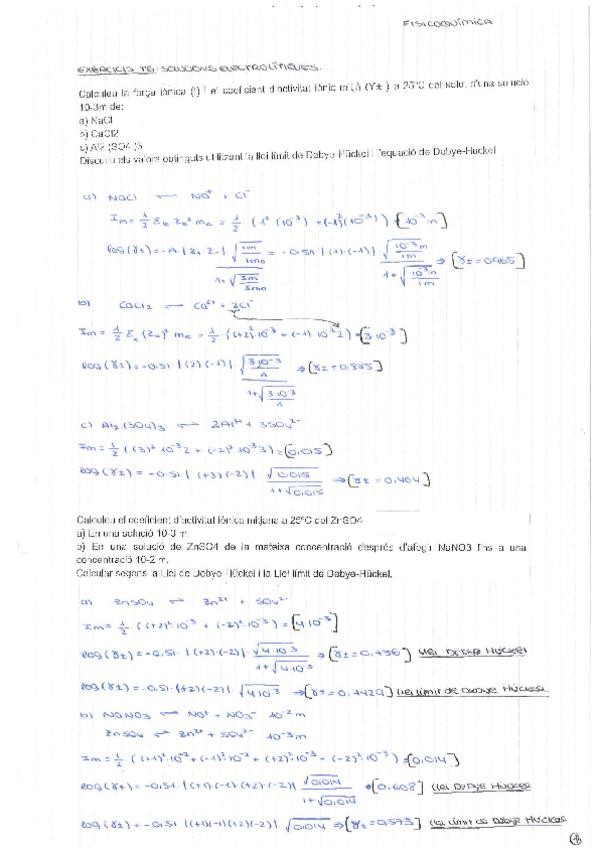 FISICOQUÍMICA
EXERCICIS T6: SOLUCIONS ELECTROLÍTIQUES.
Calculeu la força iònica (I) i el coeficient d'activitat iònic mitjà (γ±) a 25°C del solut d'una solució
10-3m de:
a) NaCl
b) CaCl2
c) Al2 (SO4 )3
Discutiu els valors obtinguts utilitzant la llei límit de Debye-Hückel i l'equació de Debye-Huckel
a) NaCl ⇌ Na⁺ + Cl⁻
Im = 1/2 Σk Zk² mk = 1/2 · (1² (10⁻³) + (-1)² (10⁻³)) = [10⁻³ m]
log(γ±) = -A · |Z+ Z-| √(Im/1m0) / 1+√(Im/1m0) = -0.51 · |(1)(-1)| · √(10⁻³m/1m) / 1+√(10⁻³m/1m) ⇒ [γ± = 0.965]
b) CaCl2 ⇌ Ca²⁺ + 2Cl⁻
Im = 1/2 Σk (Zk)² mk = 1/2 · ((+2)² 10⁻³ + (-1) 10⁻³ 2) = [3·10⁻³]
log(γ±) = -0.51 · |(2)(-1)| √(3·10⁻³/1) / 1+√(3·10⁻³/1) ⇒ [γ± = 0.885]
c) Al2(SO4)3 ⇌ 2Al³⁺ + 3SO4²⁻
Im = 1/2 ((3)² 10⁻³ 2 + (-2)² 10⁻³ 3) = [0.015]
log(γ±) = -0.51 |(+3)(-2)| · √0.015 / 1+√0.015 ⇒ [γ± = 0.464]
Calculeu el coeficient d'activitat iònica mitjana a 25°C del ZnSO4
a) En una solució 10-3 m
b) En una solució de ZnSO4 de la mateixa concentració després d'afegir NaNO3 fins a una
concentració 10-2 m.
Calcular segons la Llei de Debye Hückel i la Llei límit de Debye-Hückel.
a) ZnSO4 ⇌ Zn²⁺ + SO4²⁻
Im = 1/2 · ((+2)² 10⁻³ + (-2)² 10⁻³) = [4·10⁻³]
log(γ±) = -0.51 · |(+2)(-2)| · √4·10⁻³ / 1+√4·10⁻³ ⇒ [γ± = 0.756] Llei DEBYE HÜCKEL
log(γ±) = -0.51 · |(+2)(-2)| · √4·10⁻³ ⇒ [γ± = 0.7429] Llei límit de DEBYE HÜCKEL
b) NaNO3 ⇌ Na⁺ + NO3⁻ 10⁻² m
ZnSO4 ⇌ Zn²⁺ + SO4²⁻ 10⁻³ m
Im = 1/2 ((+1)² 10⁻² + (-1)² 10⁻² + (+2)² 10⁻³ + (-2)² 10⁻³) = [0.014]
log(γ±) = -0.51 |(+1)(-1)(+2)(-2)| √0.014 / 1+√0.014 ⇒ [0.608] Llei DEBYE HÜCKEL
log(γ±) = -0.51 · |(+1)(-1)(+2)(-2)| √0.014 ⇒ [γ± = 0.573] Llei límit de DEBYE HÜCKEL